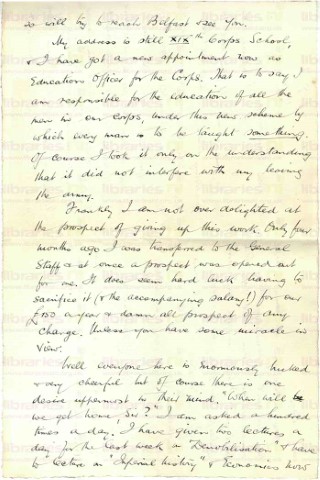 so will try to reach Belfast & see you.
My address is still XIXth Corps School,
& I have got a new appointment now as
Education Officer for the Corps. That is to say I
am responsible for the education of all the
men in our Corps, under this new scheme by
which every man is to be taught something.
Of course I took it only on the understanding
that it did not interfere with my leaving
the army.
Frankly I am not over delighted at
the prospect of giving up this work. Only four
months ago I was transferred to the General
Staff & at once a prospect was opened out
for me. It does seem hard luck having to
sacrifice it (& the accompanying salary!) for our
£150 a year & damn all prospect of any
change. Unless you have some miracle in
view.
Well everyone here is enormously bucked
& very cheerful but of course there is one
desire uppermost in their mind. "When will
we get home, Sir?" I am asked a hundred
times a day. I have given two lectures a
day for the last week on "Demobilisation" & have
to lecture on "Imperial history" & Economics now
libraries